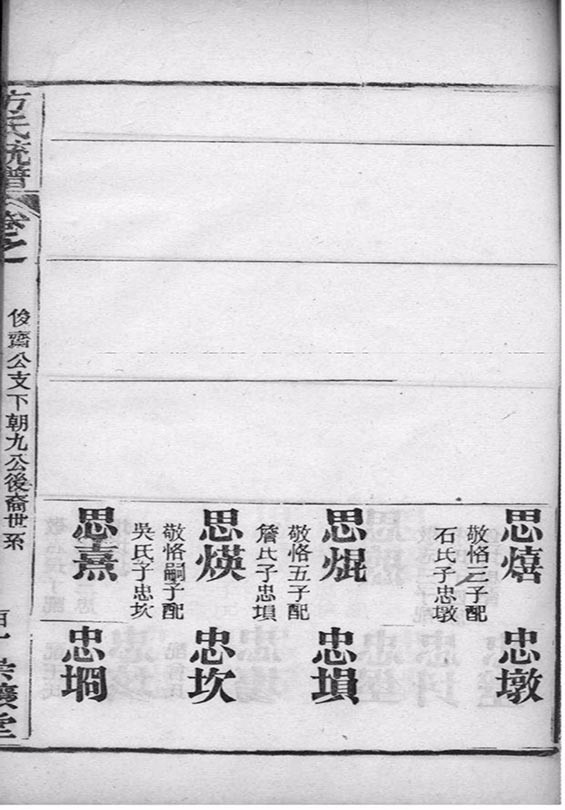 思熺
敬恪三子配
石氏子忠墩
忠墩
思焜
敬恪五子配
詹氏子忠塤
忠塤
思煐
敬恪嗣子配
吳氏子忠坎
忠坎
思熹
忠堈
方氏統譜
卷之一
俊齋公支下朝九公後裔世系